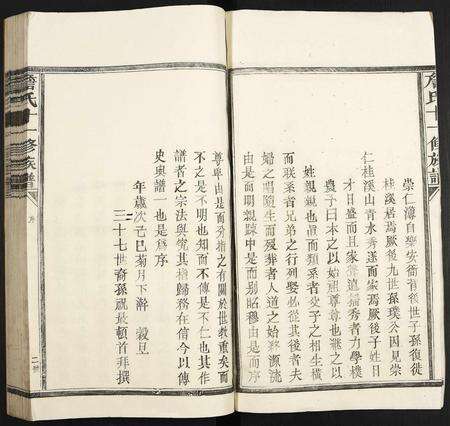 詹氏十一修族譜
崇仁薄自樂安衙背後世子孫復從
桂溪居焉厥後九世孫璞公因見崇
仁桂溪山青水秀遂而家焉厥後子姓日
才日豐而且家秀者力學樸
農予曰本之以始祖尊尊也繼之以
姓親親也眞而類系者父子之相生橫
而联系者兄弟之行列娶必從其後者夫
婦之唱隨生而葬者人道之始終源流
由是而明親疎由是而別昭穆由是而序
尊卑由是而分譜之有關於世教重矣而
不之是不明也知而不傳是不仁也其作
譜者之宗法與歸務在信今以傳
史與譜一也是爲序
年歲次己巳菊月下澣 穀旦
三十七世裔孫頓首拜撰
詹氏十一修族譜
序